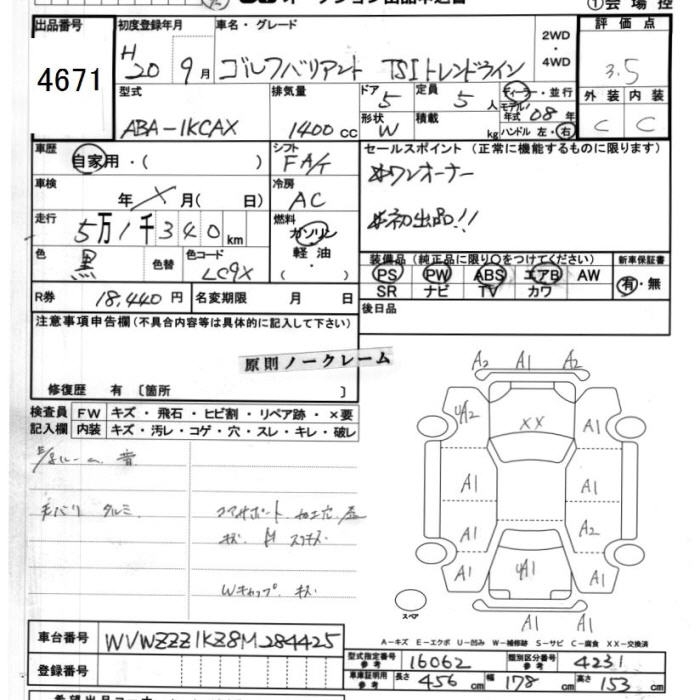 オークション出品申込書
①会場控
出品番号
4671
初度登録年月
H 20 9月
車名・グレード
ゴルフバリアント TSIトレンドライン
2WD
・
4WD
評価点
3.5
外装 内装
C C
型式
ABA-1KCAX
排気量
1400 cc
ドア 5
定員 5 人
形状 W
積載 kg
ディーラー・並行
モデル/年式 08年
ハンドル 左・右
車歴
自家用・( )
シフト
FAT
車検
年 X 月( 日)
冷房
AC
走行
5万1千340km
燃料
ガソリン
軽油
・( )
色
黒
色替
色コード
LC9X
セールスポイント(正常に機能するものに限ります)
※ワンオーナー
※初出品!!
装備品(純正品に限り○をつけてください)
PS PW ABS エアB AW
SR ナビ TV カワ
新車保証書
有・無
R券 18,440円
名変期限 月 日
後日品
注意事項申告欄(不具合内容等は具体的に記入して下さい)
原則ノークレーム
修復歴 有 〔箇所 〕
検査員記入欄
FW キズ・飛石・ヒビ割・リペア跡・×要
内装 キズ・汚レ・コゲ・穴・スレ・キレ・破レ
Wキャップ キズ
A2 A1 A2
UA2 XX A1
A1 A1
A1 A2
A1 UA1 A1
A1 A1
スペア
A-キズ E-エクボ U-凹み W-補修跡 S-サビ C-腐食 XX-交換済
車台番号
WVWZZZ1KZ8M284425
登録番号
型式指定番号参考 16062
類別区分番号参考 4231
車庫証明用参考 長さ 456cm 幅 178cm 高さ 153cm